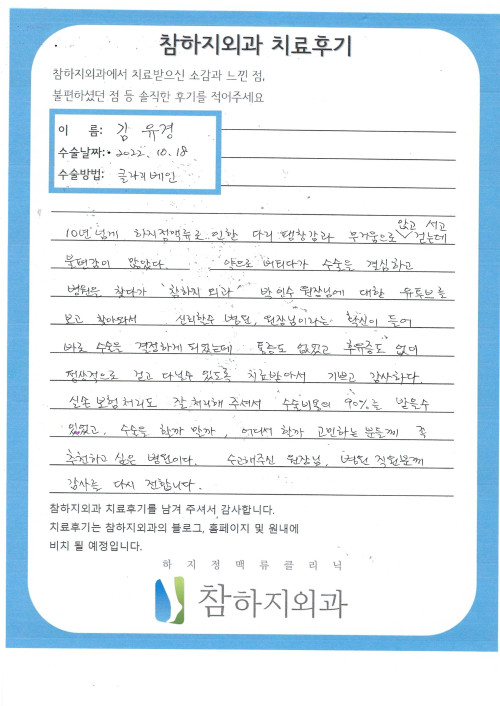 참하지외과 치료후기
참하지외과에서 치료받으신 소감과 느낀 점,
불편하셨던 점 등 솔직한 후기를 적어주세요
이 름: 김 유경
수술날짜: 2022. 10. 18
수술방법: 클라리베인
앉고 서고
10년 넘게 하지정맥류로 인한 다리 팽창감과 무거움으로 걷는데
불편감이 많았다. 약으로 버티다가 수술을 결심하고
병원을 찾다가 '참하지 외과' 박인수 원장님에 대한 유튜브를
보고 찾아와서 신뢰할수 병원, 원장님이라는 확신이 들어
바로 수술을 결정하게 되었는데 통증도 없었고 후유증도 없이
정상적으로 걷고 다닐수 있도록 치료받아서 기쁘고 감사하다.
실손보험처리도 잘 처리해 주셔서 수술비용의 90%는 받을수
있었고, 수술을 할까 말까, 어디서 할까 고민하는 분들께 꼭
추천하고 싶은 병원이다. 수고해주신 원장님, 병원 직원분께
감사를 다시 전합니다.
참하지외과 치료후기를 남겨 주셔서 감사합니다.
치료후기는 참하지외과의 블로그, 홈페이지 및 원내에
비치 될 예정입니다.
하지정맥류클리닉
참하지외과